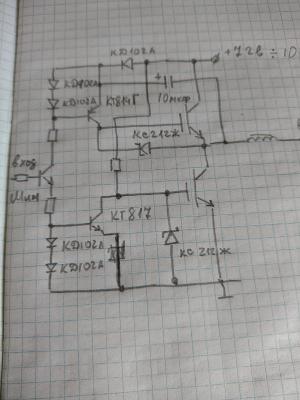 КД102А
+72в ÷ 10
КД102А
КД102А
КТ814Г
10мкф
КС212Ж
вход
Шим
КТ817
КД102А
КД102А
КС212Ж